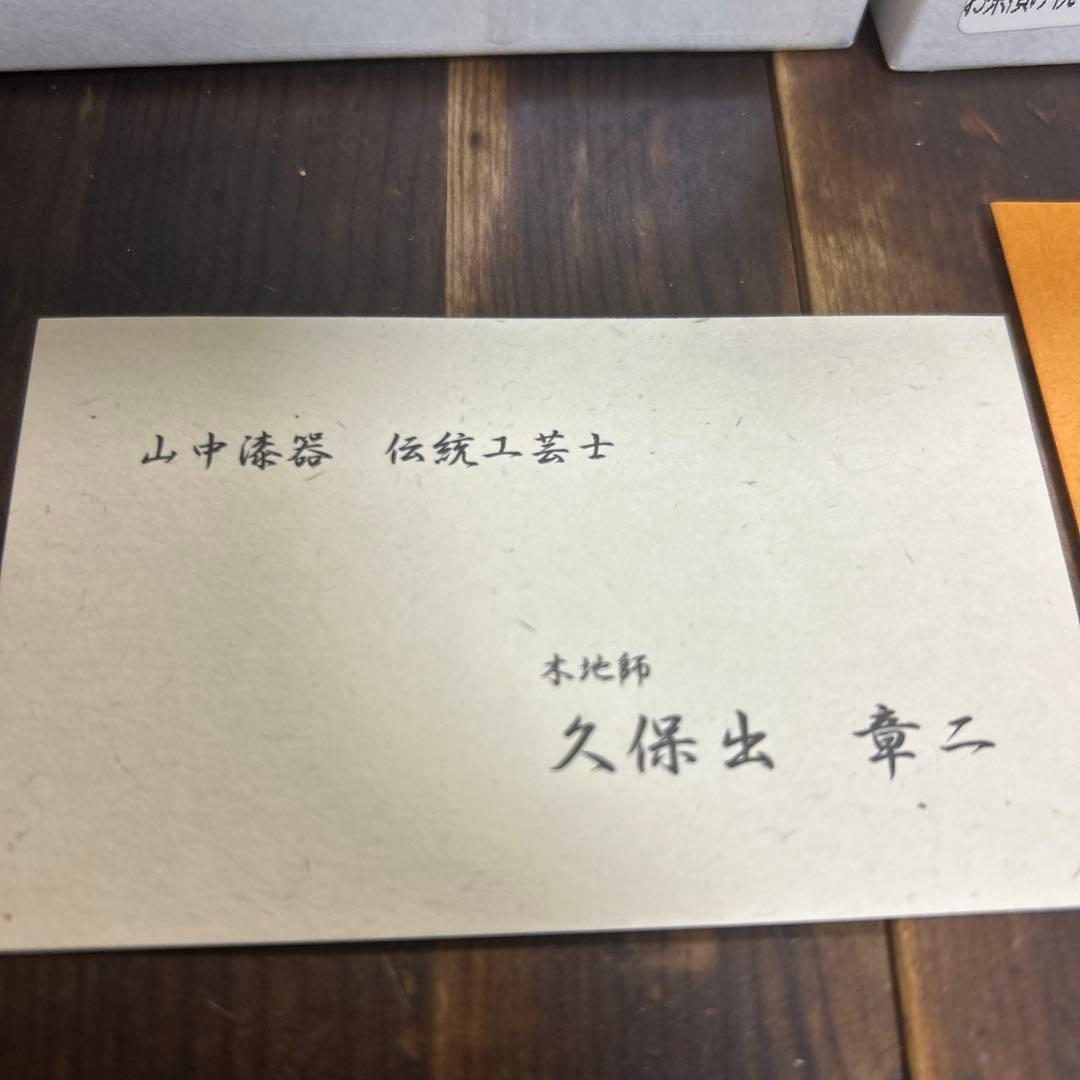 山中漆器　伝統工芸士
木地師
久保出　章二